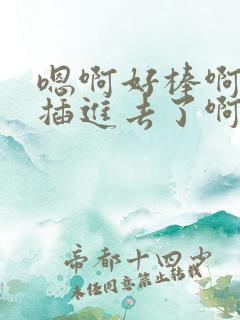 嗯啊好棒啊
插進去了啊
帝都十四少
未经同意禁止转载